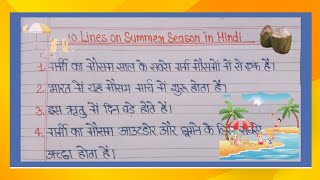 10 Lines on Summer Season in Hindi
1. गर्मी का मौसम साल के
गर्म मौसमों में से एक है।
2. भारत में यह मौसम मार्च में शुरू होता है।
3. इस ऋतु में दिन बड़े होते हैं।
4. गर्मी का मौसम आउटडोर और घूमने के लिए
अच्छा होता है।